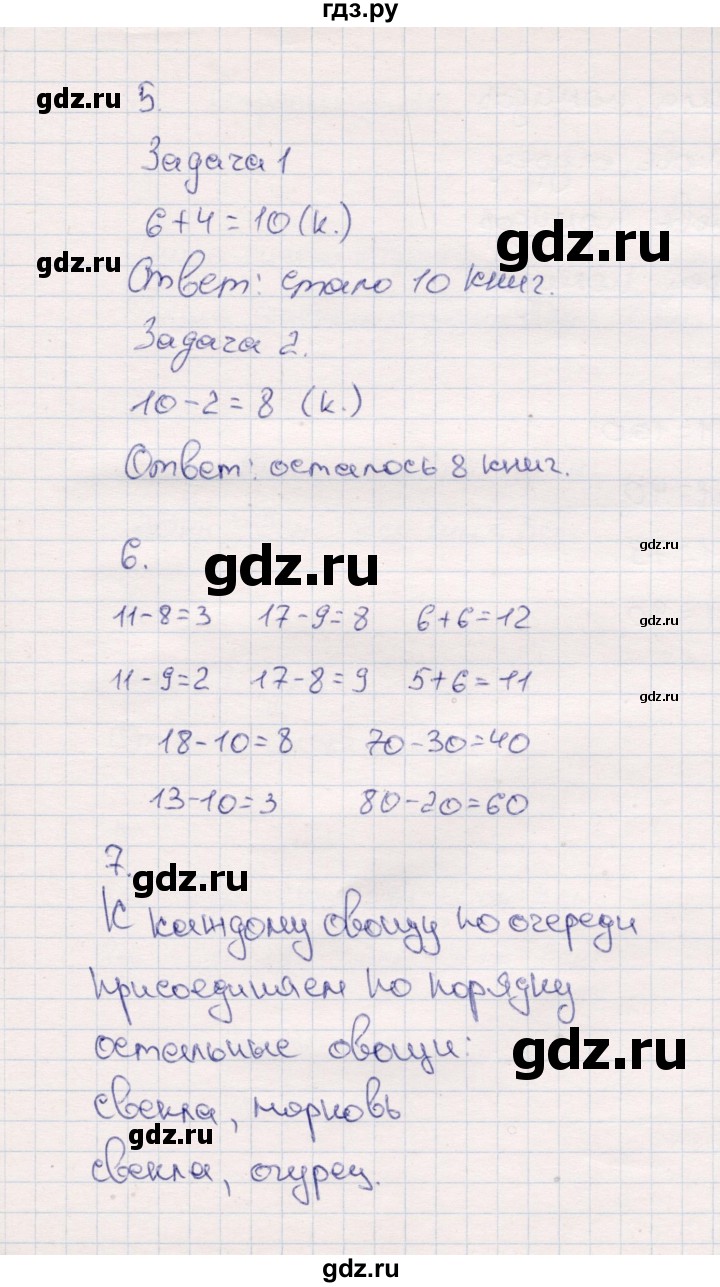 гдз.ру
gdz.ru 5.
Задача 1
6+4=10 (к.)
gdz.ru
gdz.ru
Ответ: стало 10 книг.
Задача 2.
10-2=8 (к.)
Ответ: осталось 8 книг.
6. gdz.ru gdz.ru
11-8=3 17-9=8 6+6=12 gdz.ru
11-9=2 17-8=9 5+6=11 gdz.ru
18-10=8 70-30=40
13-10=3 80-20=60
7. gdz.ru
К каждому овощу по очереди
присоединяем по порядку
остальные овощи: gdz.ru
свекла, морковь
gdz.ru
свекла, огурец.
gdz.ru